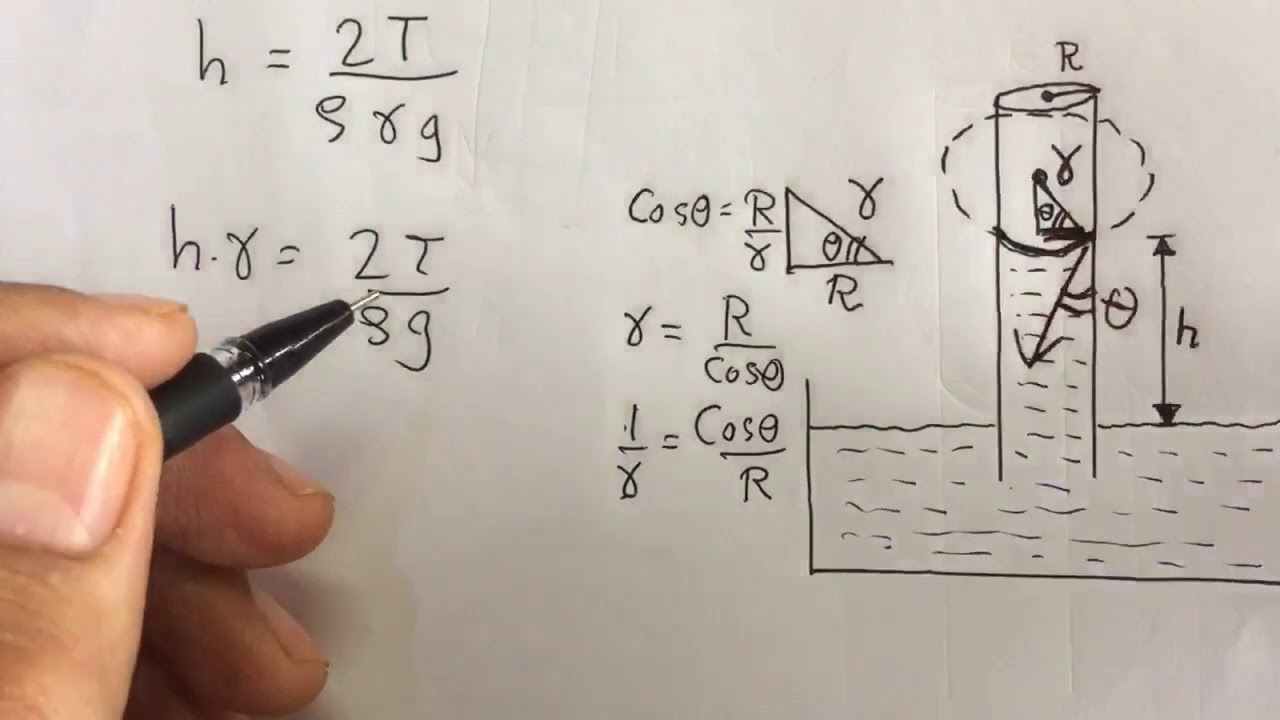 h = 2T / ρrg
h.r = 2T / ρg
Cosθ = R / r
r
θ
R
r = R / Cosθ
1 / r = Cosθ / R
R
r
θ
θ
h